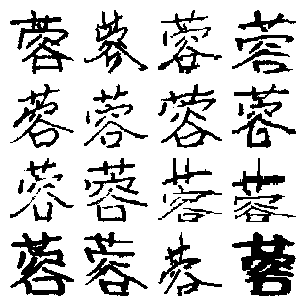 蓉蓉蓉蓉
蓉蓉蓉蓉
蓉蓉蓉蓉
蓉蓉蓉蓉